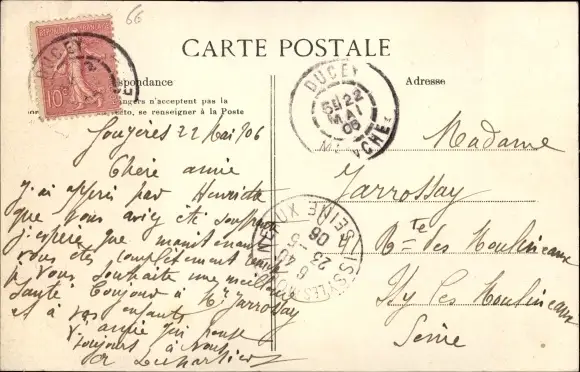 66
RÉPUBLIQUE FRANÇAISE
10c
DUCEY
CARTE POSTALE
spondance
Adresse
angers n'acceptent pas la
recto, se renseigner à la Poste
DUCEY
22
MAI
06
MANCHE
22 Mai 06
Chère amie
J'ai appris par Henriette
que vous aviez été souffrante
j'espère que maintenant
vous êtes complètement
je vous souhaite une meilleure
santé Bonjour à Mr Jarrossay
et à vos enfants
V. amie qui pense
toujours à vous
ISSY-LES-MOULINEAUX
SEINE
23
5
06
Madame
Jarrossay
Rte des Moulineaux
Issy les Moulineaux
Seine